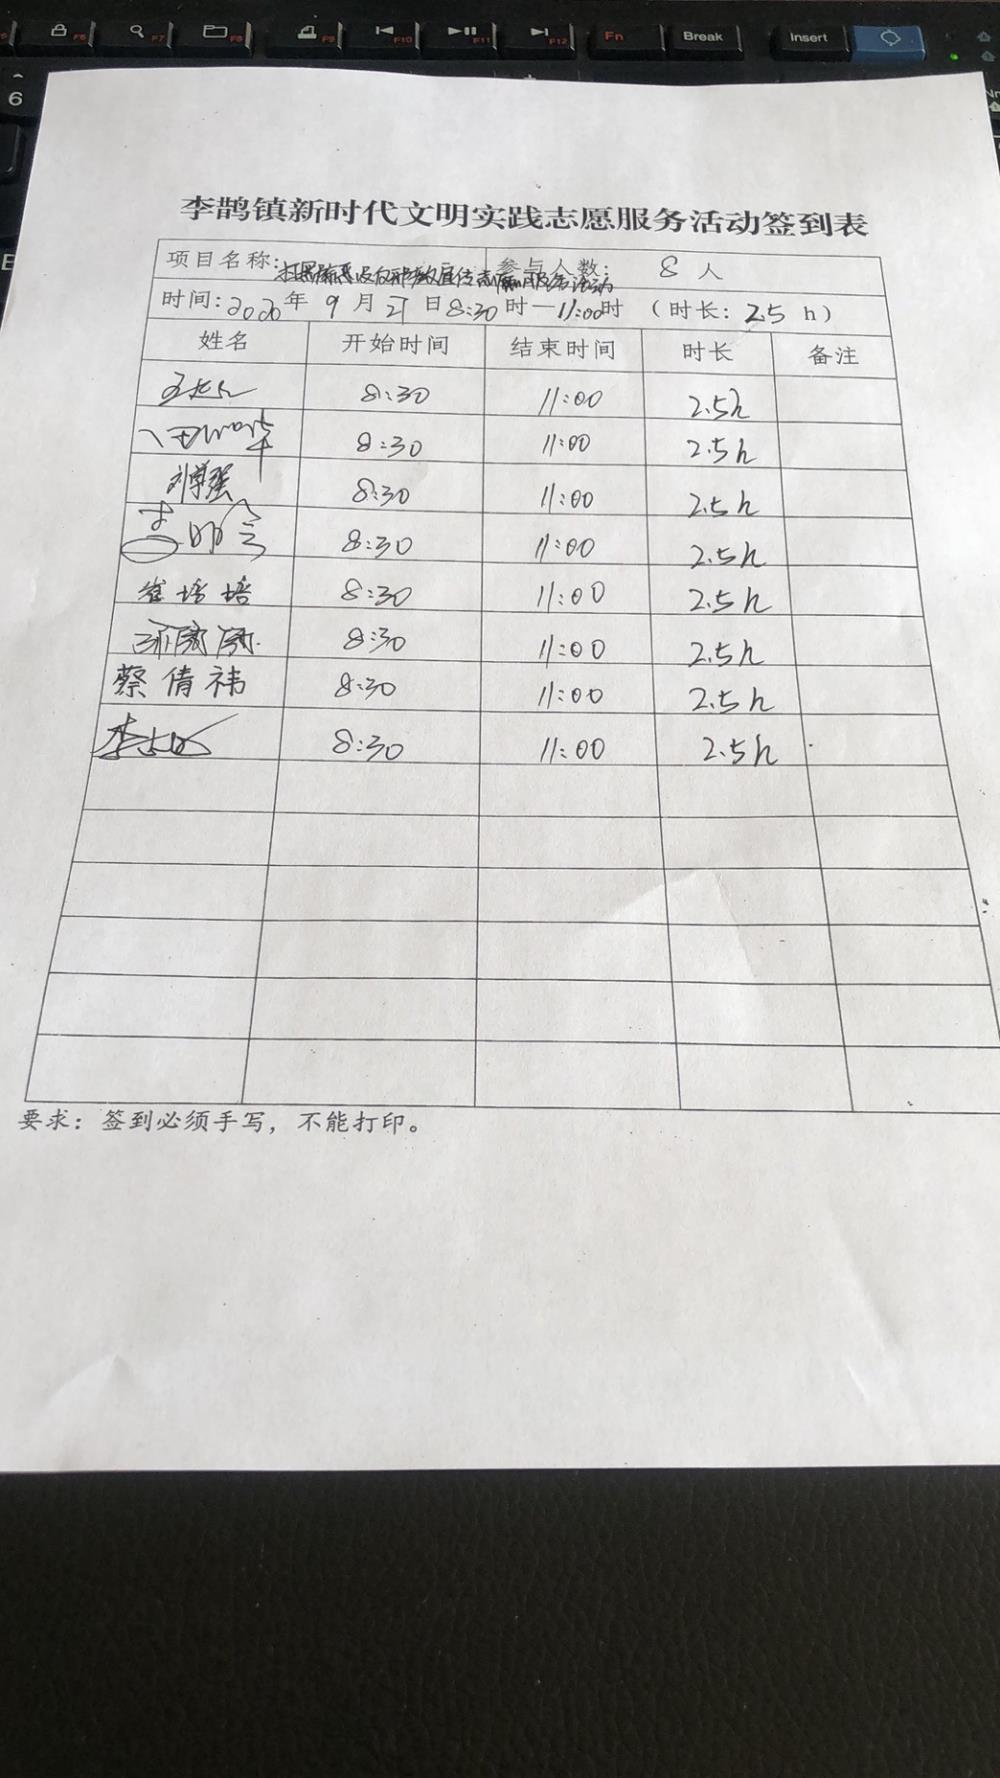 F6 F7 F8 F9 F10 F11 F12 Fn Break Insert
6
李鹊镇新时代文明实践志愿服务活动签到表
项目名称:扫黑除恶及反邪教宣传志愿服务活动 参与人数: 8 人
时间:2020年 9 月 21 日8:30时一11:00时 (时长: 2.5 h)
姓名 开始时间 结束时间 时长 备注
8:30 11:00 2.5h
8:30 11:00 2.5h
刘尊强 8:30 11:00 2.5h
8:30 11:00 2.5h
崔培培 8:30 11:00 2.5h
8:30 11:00 2.5h
蔡倩祎 8:30 11:00 2.5h
李 8:30 11:00 2.5h
要求: 签到必须手写，不能打印。